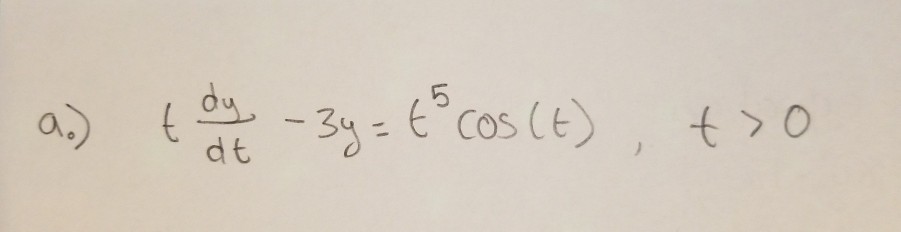 a.) t dy/dt - 3y = t^5 cos(t) , t > 0